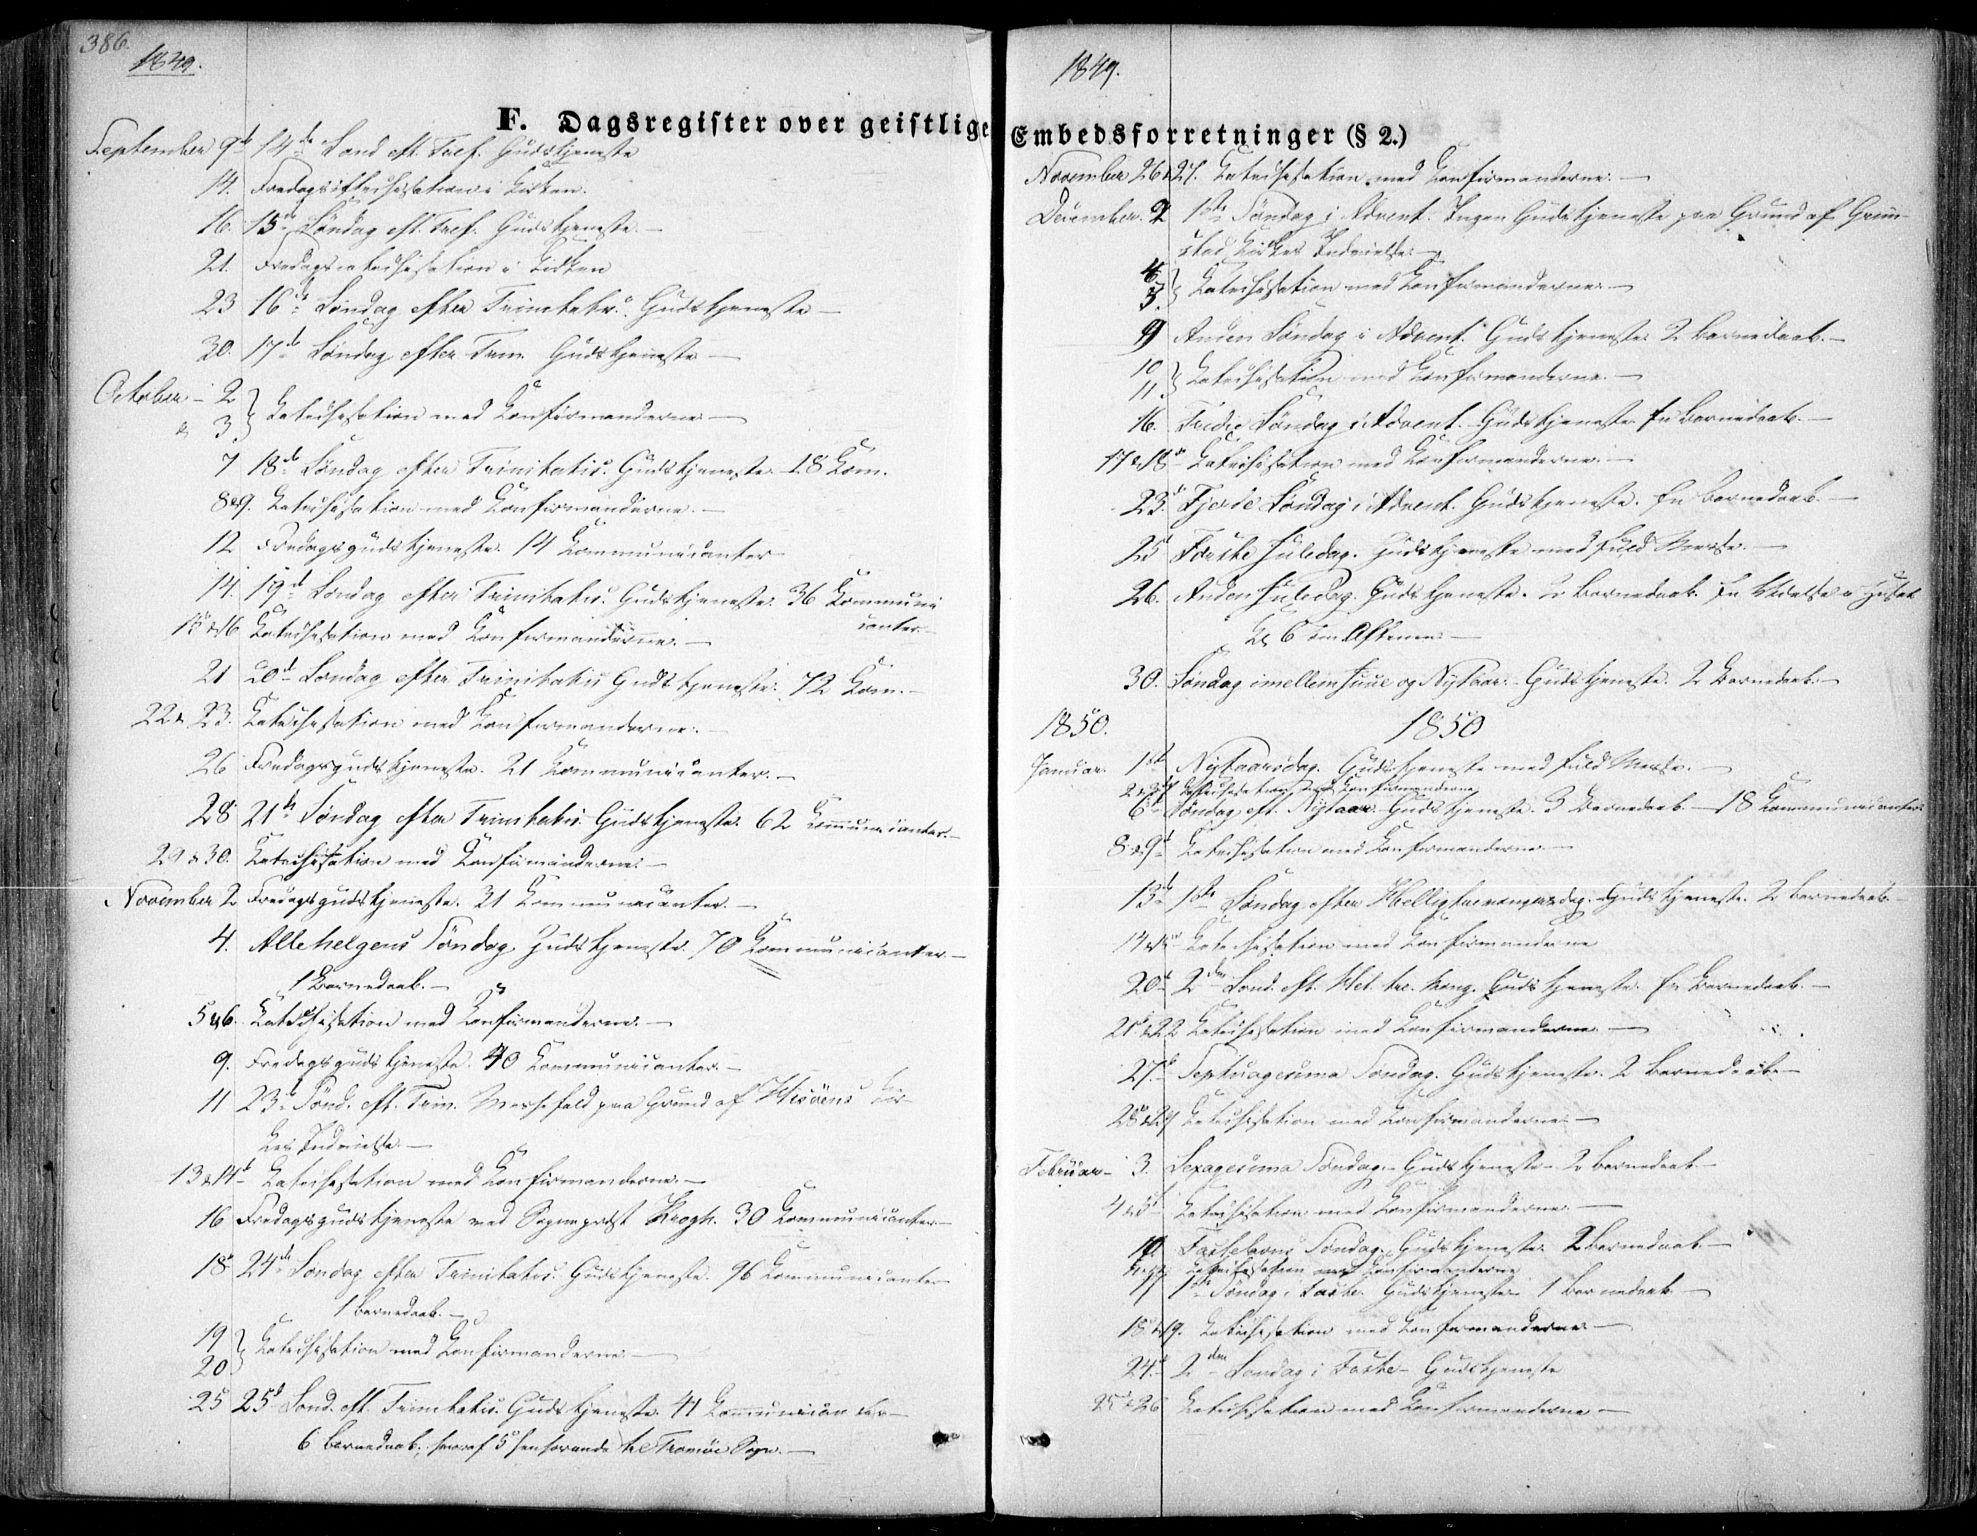 386.
1849.
F. Dagsregister over geistlige
September 9d 14de Sønd. eft. Tref. Gudstjeneste
14. Fredagscatechisation i Kirken.
16. 15de Søndag eft. Tref. Gudstjeneste. —
21. Fredagscatechisation i Kirken
23 16de Søndag efter Trinitatis. Gudstjeneste —
30. 17de Søndag efter Trin. Gudstjeneste —
October – 2
& 3 Katechisation med Konfirmanderne —
7 18de Søndag efter Trinitatis. Gudstjeneste 18 Kom.
8&9. Katechisation med Konfirmanderne. —
12 Fredagsgudstjeneste. 14 Kommunicanter
14. 19de Søndag efter Trinitatis. Gudstjeneste. 36 Kommuni
canter. —
15&16. Katechisation med Konfirmanderne. —
21 20de Søndag efter Trinitatis Gudstjeneste. 72 Kom. —
22 & 23. Katechisation med Konfirmanderne. —
26 Fredagsgudstjeneste. 21 Kommunicanter. —
28 21de Søndag efter Trinitatis. Gudstjeneste. 62 Kommunicanter. —
29 & 30. Katechisation med Konfirmanderne. —
November 2 Fredagsgudstjeneste. 31 Kommunicanter. —
4. Allehelgens Søndag. Gudstjeneste. 70 Kommunicanter —
1 Barnedaab. —
5&6. Katechisation med Konfirmanderne. —
9. Fredagsgudstjeneste. 40 Kommunicanter. —
11 23de Sønd. eft. Trin. Messefald paa Grund af Hisøens Kir-
kes Indvielse. —
13 & 14d Katechisation med Konfirmanderne. —
16 Fredagsgudstjeneste med Sognepræst Krogh. 30 Kommunicanter. —
18d 24de Søndag efter Trinitatis. Gudstjeneste. 96 Kommunicanter
1 Barnedaab. —
19
20 Katechisation med Konfirmanderne. —
25 25d Sønd. eft. Trinitatis. Gudstjeneste 41 Kommunicanter —
6 Barnedaab, hvoraf 5 henhørende til Tromøe Sogn. —
1849.
Embedsforretninger (§ 2.)
November 26&27. Katechisation med Konfirmanderne. —
December. 2 1ste Søndag i Advent. Ingen Gudstjeneste paa Grund af Grim-
stad Kirkes Indvielse. —
4
5. Katechisation med Konfirmanderne. —
9 Anden Søndag i Advent. Gudstjeneste. 2 Barnedaab. —
10
11 Katechisation med Konfirmanderne. —
16. Tredie Søndag i Advent. Gudstjeneste En Barnedaab. —
17&18d Katechisation med Konfirmanderne. —
23d Fjerde Søndag i Advent. Gudstjeneste. En Barnedaab. —
25 Første Juledag. Gudstjeneste med fuld Messe. —
26. Anden Juledag. Gudstjeneste. 2 Barnedaab. En Vielse i Huset
Kl 6 om Aftenen. —
30. Søndag imellem Juul og Nytaar. Gudstjeneste. 2 Barnedaab. —
1850. 1850
Januar. 1ste Nytaarsdag. Gudstjeneste med fuld Messe. —
Katechisation med Konfirmanderne
6d Søndag eft. Nytaar. Gudstjeneste. 3 Barnedaab. — 18 Kommunicanter.
8&9d Katechisation med Konfirmanderne. —
13de 1ste Søndag efter Helligtrekongersdag. Gudstjeneste. 2 Barnedaab. —
Katechisation med Konfirmanderne
20d 2den Sønd. eft. Hel. tre. Kong. Gudstjeneste. En Barnedaab. —
21d&22 Katechisation med Konfirmanderne. —
27d Septuagesima Søndag. Gudstjeneste. 2 Barnedaab. —
28&29 Katechisation med Konfirmanderne. —
Februar – 3. Sexagesima Søndag. – Gudstjeneste – 2 Barnedaab. —
4 & 5d Katechisation med Konfirmanderne. —
10. Fastelavns Søndag. Gudstjeneste 2 Barnedaab —
Katechisation med Konfirmanderne
17 1ste Søndag i Faste. Gudstjeneste 1 Barnedaab —
18&19. Katechisation med Konfirmanderne —
24d 2den Søndag i Faste – Gudstjeneste
25 & 26 Katechisation med Konfirmanderne —